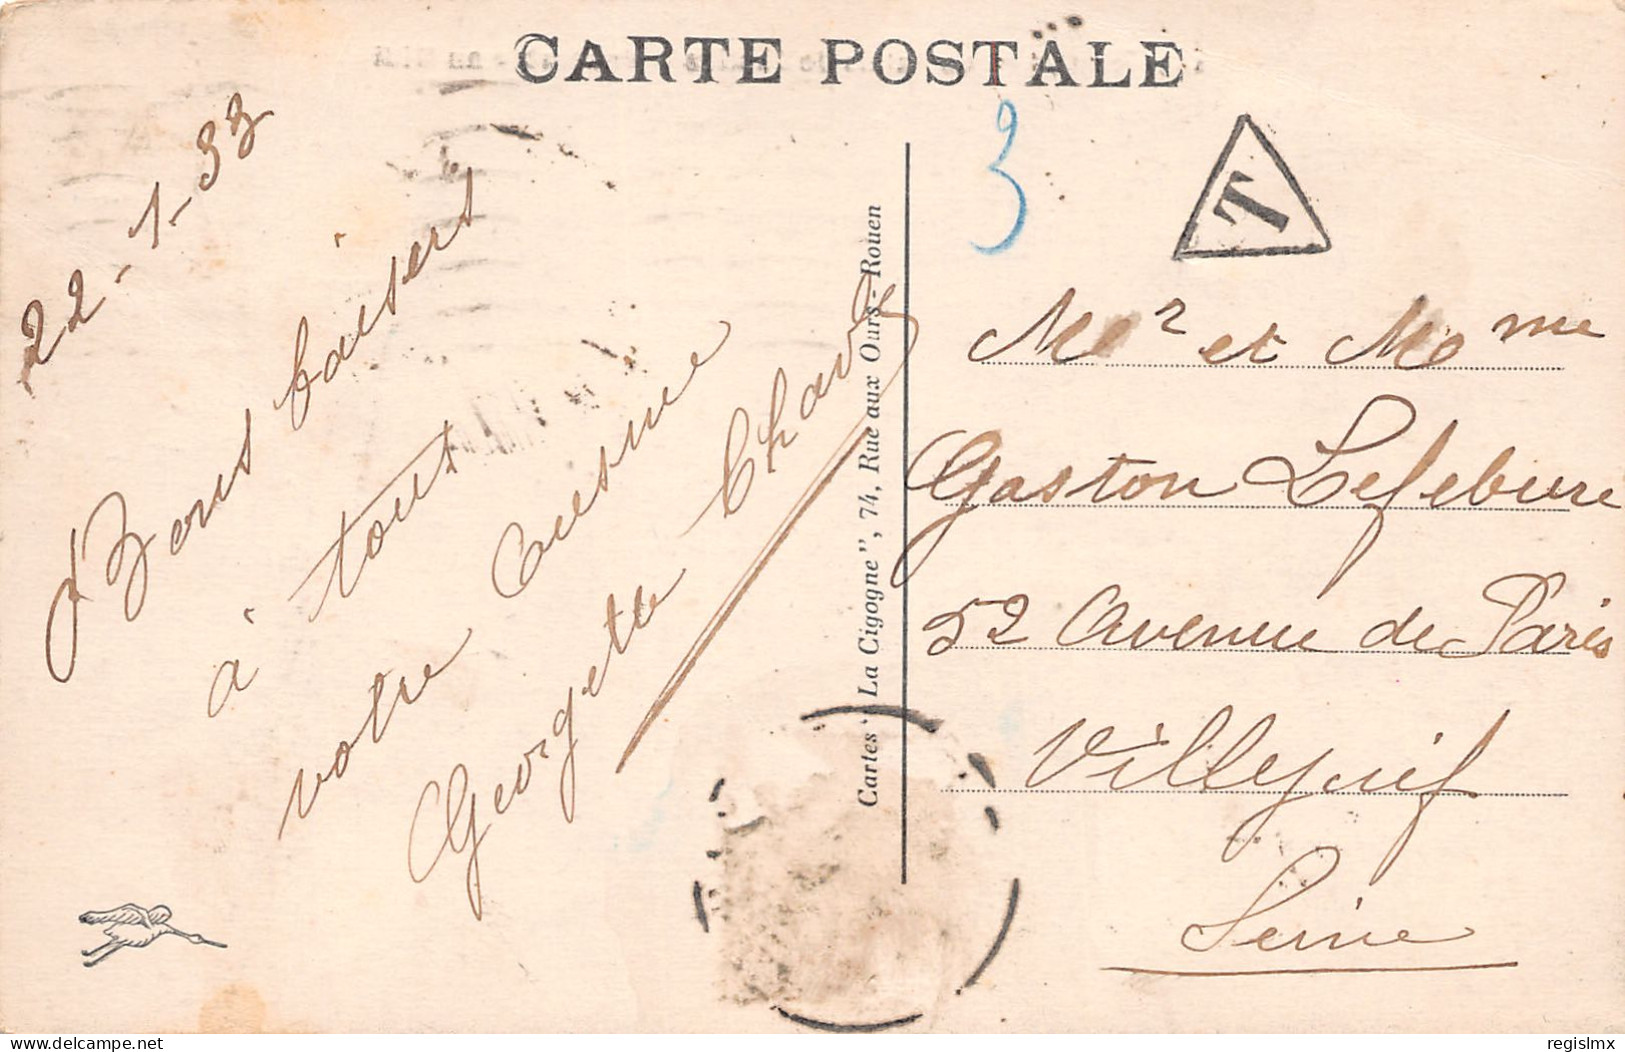 CARTE POSTALE
22-1-33
Bons baisers
à tous
votre cousine
Georgette
Cartes "La Cigogne", 74, Rue aux Ours - Rouen
3
T
Mr et Mme
Gaston Lefebure
52 Avenue de Paris
Villejuif
Seine
delcampe.net
regislmx